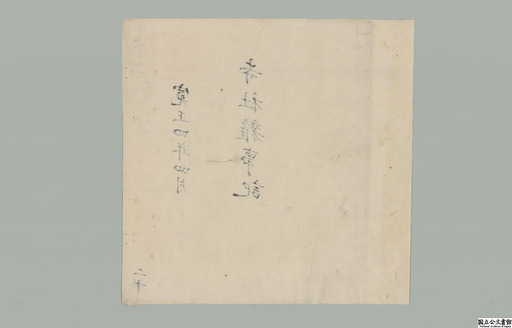 寺社雑事記
寛正四年
二十
国立公文書館
National Archives of Japan